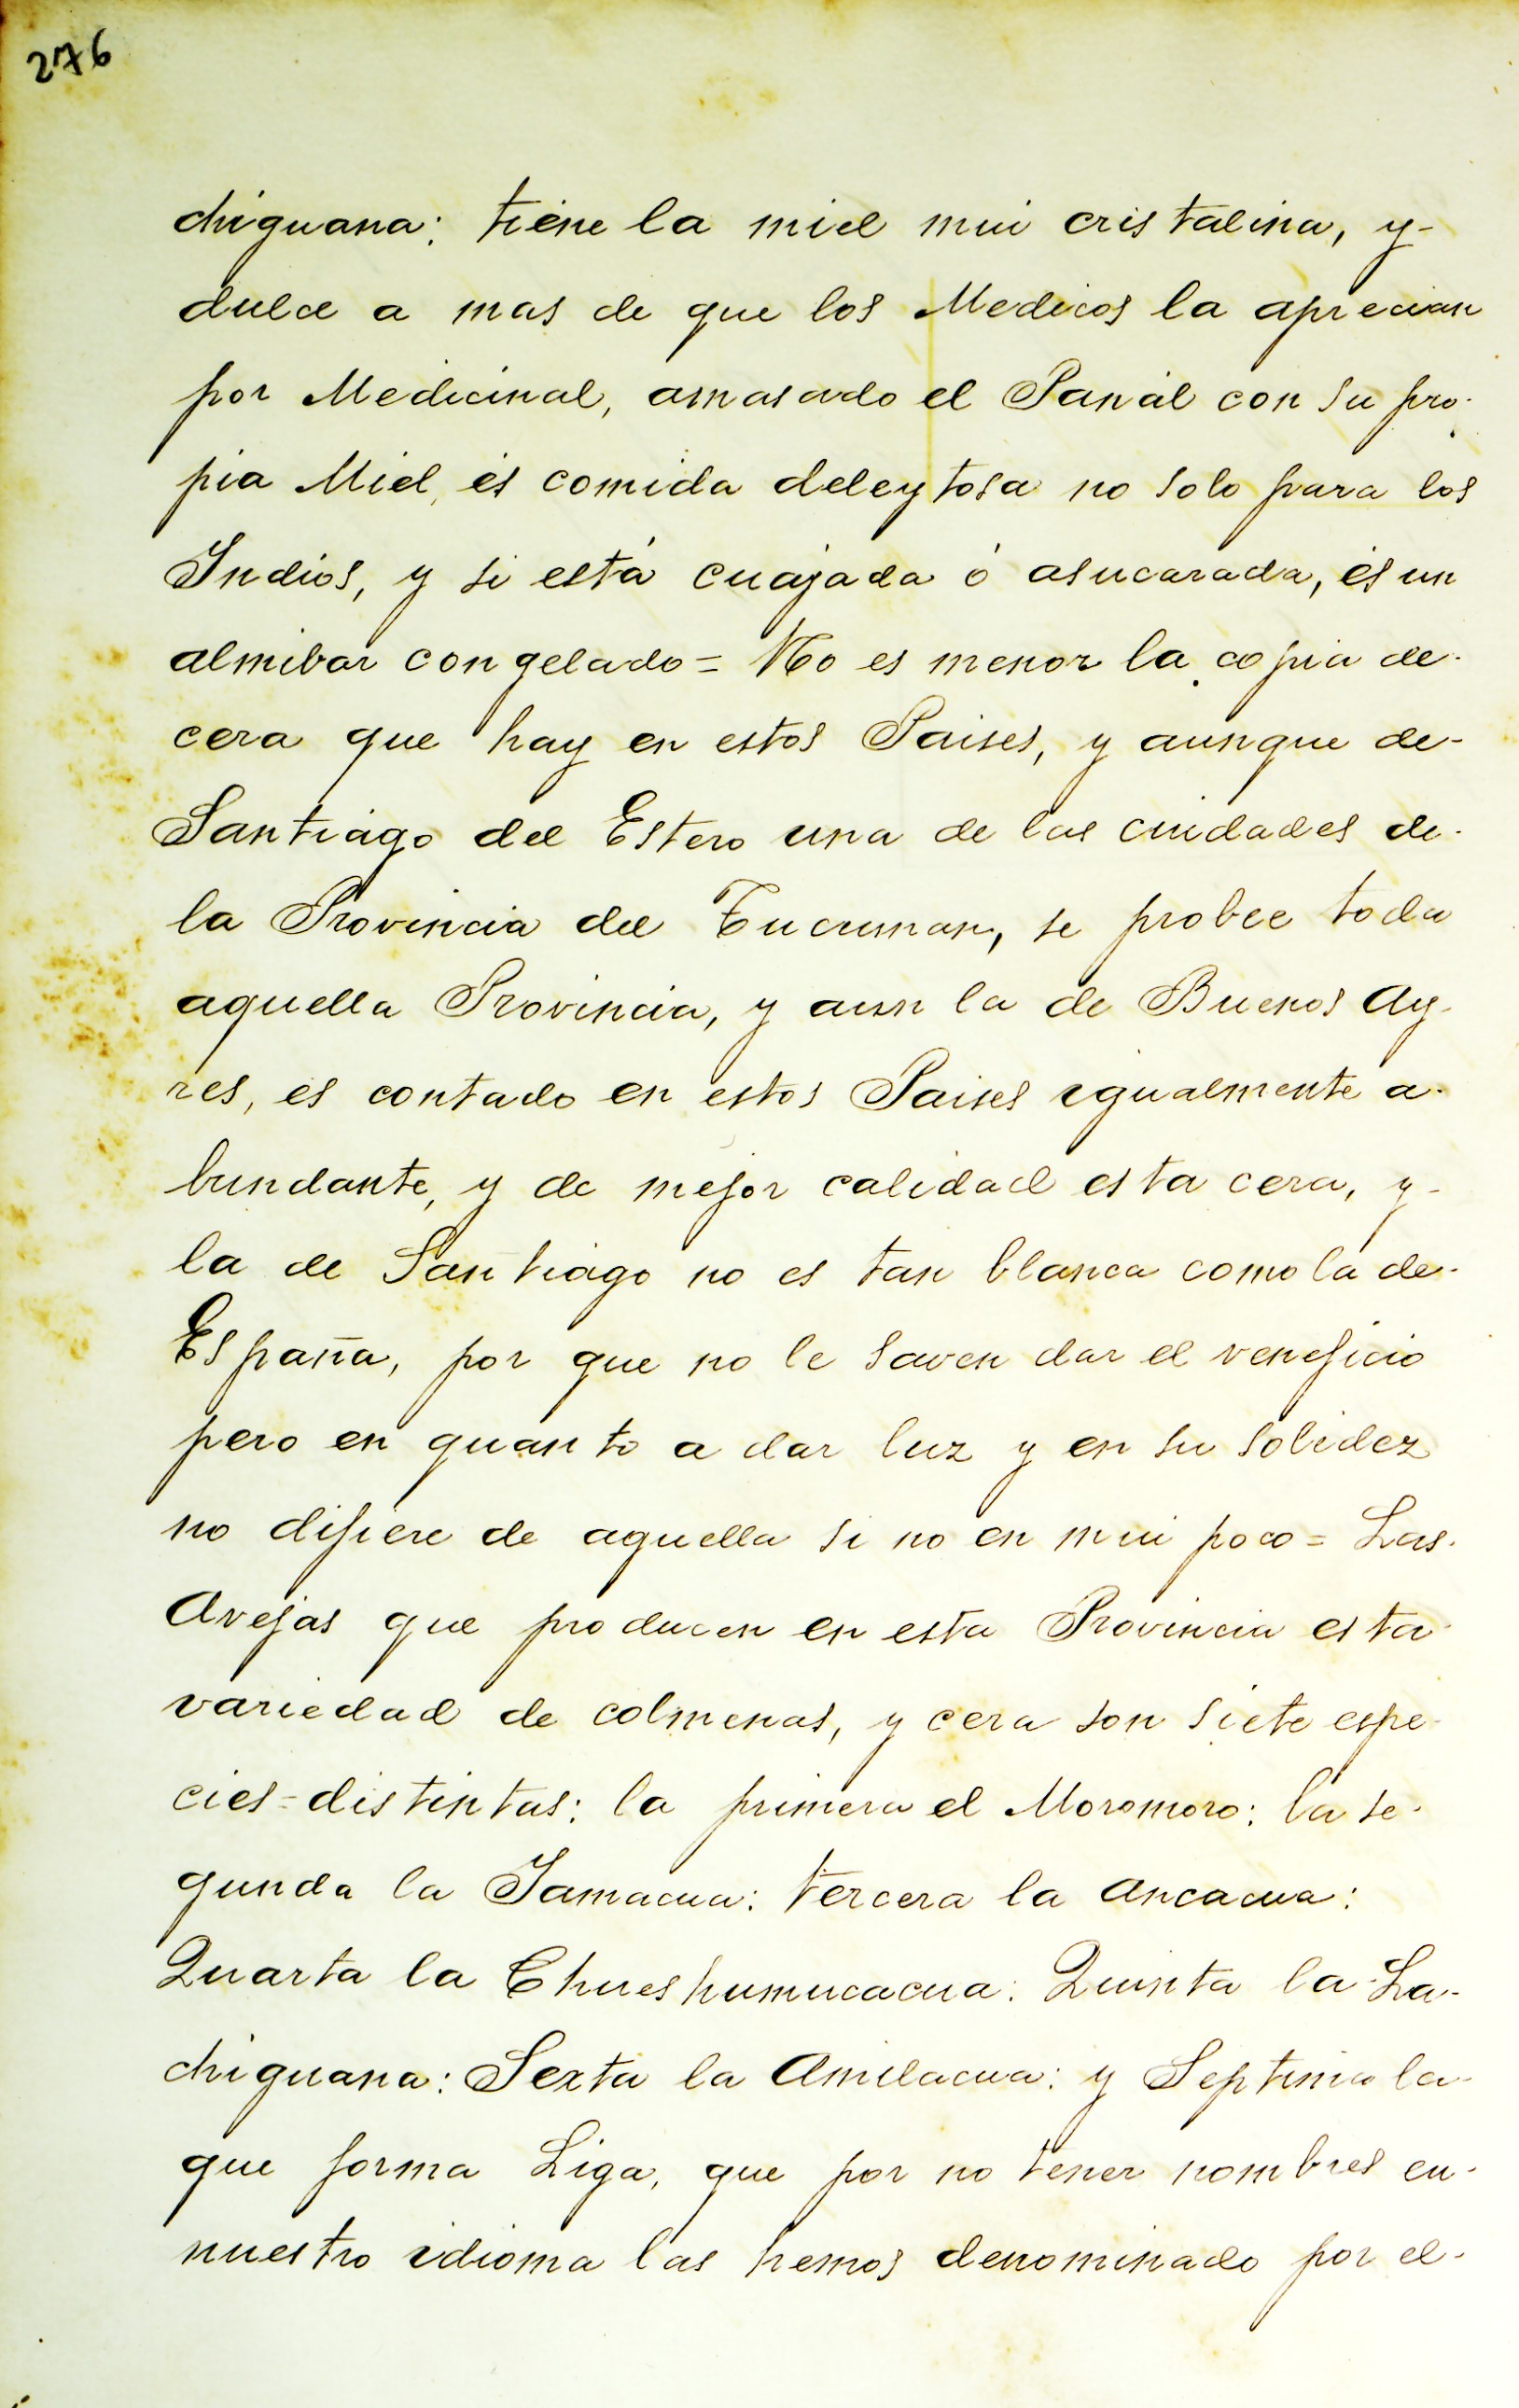 276
chiguana: tiene la miel mui cristalina, y-
dulce a mas de que los Medicos la aprecian
por Medicinal, amasado el Panal con su pro-
pia Miel, és comida deleytosa no solo para los
Indios, y si está cuajada ó asucarada, és un
almibar congelado = No es menor la copia de-
cera que hay en estos Paises, y aunque de-
Santiago del Estero una de las ciudades de-
la Provincia del Tucuman, se probee toda
aquella Provincia, y aun la de Buenos Ay-
res, es contado en estos Paises igualmente a-
bundante, y de mejor calidad esta cera, y-
la de Santiago no es tan blanca como la de-
España, por que no le saven dar el veneficio
pero en quanto a dar luz y en su solidez
no difiere de aquella si no en mui poco = Las-
Avejas que producen en esta Provincia esta-
variedad de colmenas, y cera son siete espe-
cies = distintas: la primera el Moromoro: la se-
gunda la Yamacua: tercera la Ancacua:
Quarta la Chueshumucacua: Quinta la La-
chiguana: Sexta la Amilacua: y Septima la-
que forma Liga, que por no tener nombres en-
nuestro idioma las hemos denominado por el-